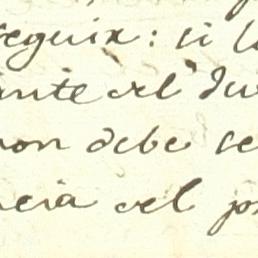 seguir: si l
ante del Ju
non debe se
ncia del p